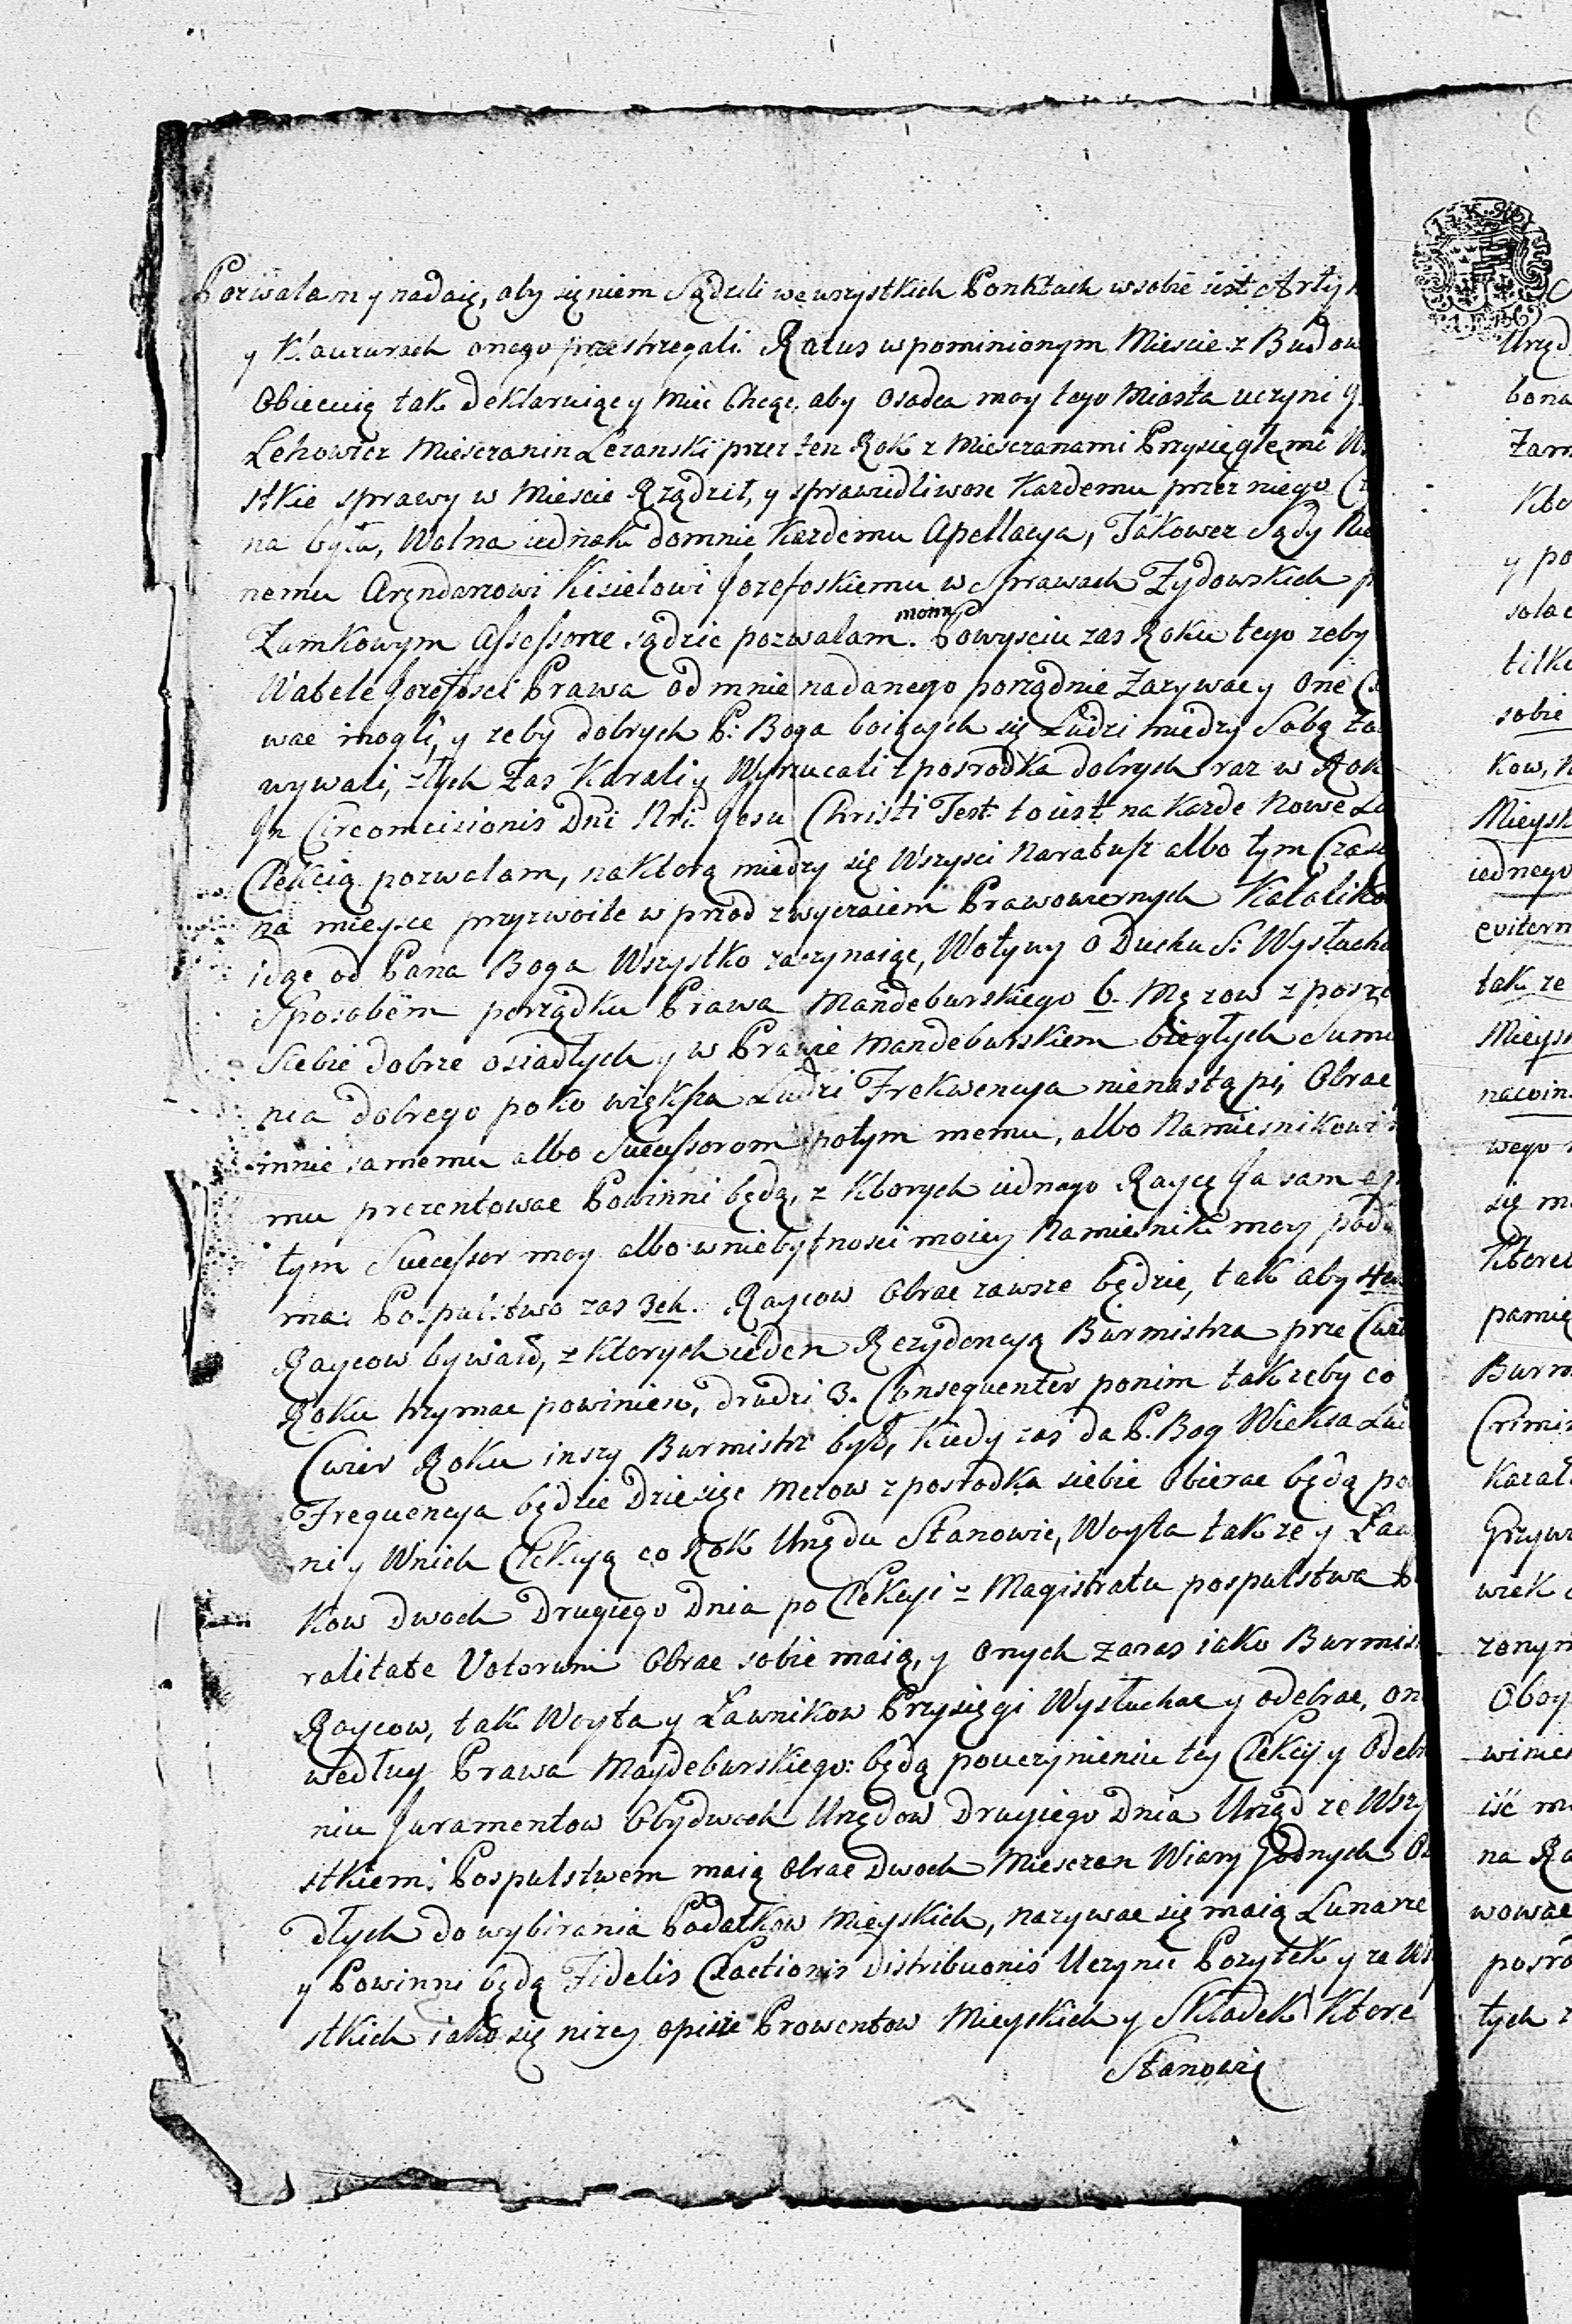 Pozwalam y nadaię, aby się niem Sądzili we wszystkich Ponktach w sobie iest Arty
y Klauzurach onego przestrzegali. Ratus wpominionym Miescie z Budow
Obiecuię tak deklaruięcy Miec Chcąc, aby Osadca moy tego Miasta uczyni
Lehowicz Miesczanin Lezanski przez ten Rok z Miesczanami Przysięgłemi
stkie sprawy w Miescie Rządził, y sprawiedliwosc Kazdemu przez niego
na była, Wolna iednak domnie Kazdemu Apellacya, Takowez Sądy
nemu Aręndarzowi Kisielowi Jozefoskiemu w Sprawach Zydowskich
Zamkowym Assessorze sądzic pozwalam. Powysciu zas Roku tego zeby
Watele Jozefosci Prawa od mnie nadanego porządnie Zazywac y One
wac mogli, y zeby dobrych P: Boga boiących się Ludzi miedzy Sobą
wywali, złych Zas Karali y Wyrzucali z posrodka dobrych raz w Rok
In Circomcisionis Dni Nri. Jesu Christi Fest: to iest na Kazde Nowe
Elekcią pozwalam, na Ktorą miedzy się Wszysci na ratusz albo tym Czase
na mieysce przyzwoite w przod zwyczaiem Prawowiernych Katoliko
idąc od Pana Boga Wszystko zaczynaiąc, Wotywy o Duchu S: Wysłucha
Sposobem porządku Prawa Mandeburskiego 6. Męzow z posrz
Siebie dobrze osiadłych y w Prawie Mandeburskiem biegłych Sumi
nia dobrego poko większa Ludzi Frekwencya nienastąpi, Obrac
mnie samemu albo Successorom potym memu, albo Namiesnikowi
mu prezentowac Powinni będą, z Ktorych iednego Raycę Ja sam
tym Successor moy albo w niebytnosci moiey Namiesnik moy poda
ma: Pospulstwo zas 3ch. Raycow Obrac zawsze będzie, tak aby
Raycow bywało, z Ktorych ieden Rezydencyą Burmistrza prze
Roku trzymac powinien, drudzi 3. Consequenter ponim tak zeby co
Cwier Roku inszy Burmistrz był, Kiedy zas da P. Bog Wieksa
Frequencya będzie Dziesięc Męzow z posrodka siebie Obierac będą
ni y Wnich Elekcyą co Rok Urzędu Stanowic, Woyta takze y
kow dwoch Drugiego Dnia po Elekcyi z Magistratu pospulstwa
ralitate Votorum Obrac sobie maią, y Onych zaras iako Burmis
Raycow, tak Woyta y Ławnikow Przysięgi Wysłuchac y odebrac,
według Prawa Maydeburskiego: będą pouczynieniu tey Elekcij y Odebr
niu Juramentow Obydwoch Urzędow Drugiego Dnia Urząd ze Wszy
stkiem Pospulstwem maią Obrac Dwoch Miesczan Wiary Godnych
dłych do wybirania Podatkow Mieyskich, nazywac się maią Lunarze
y Powinni będą Fidelis Exactionis distribuonis Uczynic Pozytek y ze
stkich iako się nizey opisze Prowentow Mieyskich y Składek Ktore
Stanowi
Urzęd
bona
Zam
Kto
y po
solae
tilko
sobie
Kow,
Mieysk
iednego
eviter
tak ze
Mieys
nawin
wego
się m
Ktore
pamię
Burm
Crimin
Karał
Grzyw
wiek
zonym
Oboy
winien
iść m
na Ra
wowac
posro
tych